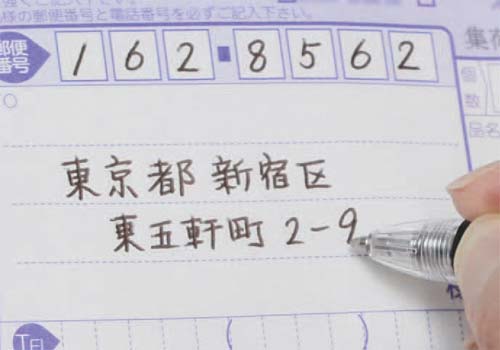 様の郵便番号と電話番号を必ずご記入下さい。
郵便番号 162-8562
東京都新宿区
東五軒町2-9
個数
品名
TEL
( )
様